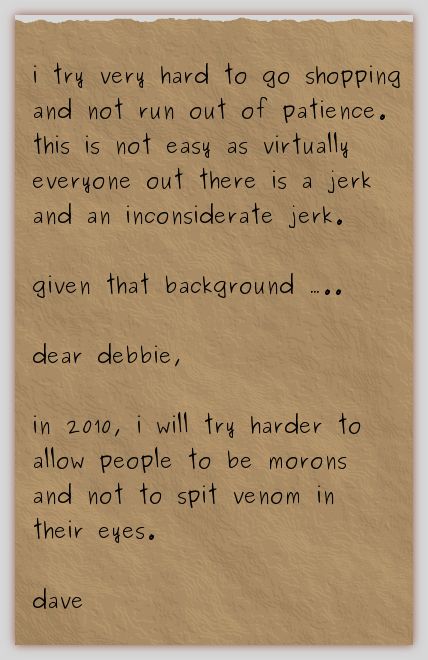 i try very hard to go shopping
and not run out of patience.
this is not easy as virtually
everyone out there is a jerk
and an inconsiderate jerk.
given that background .....
dear debbie,
in 2010, i will try harder to
allow people to be morons
and not to spit venom in
their eyes.
dave